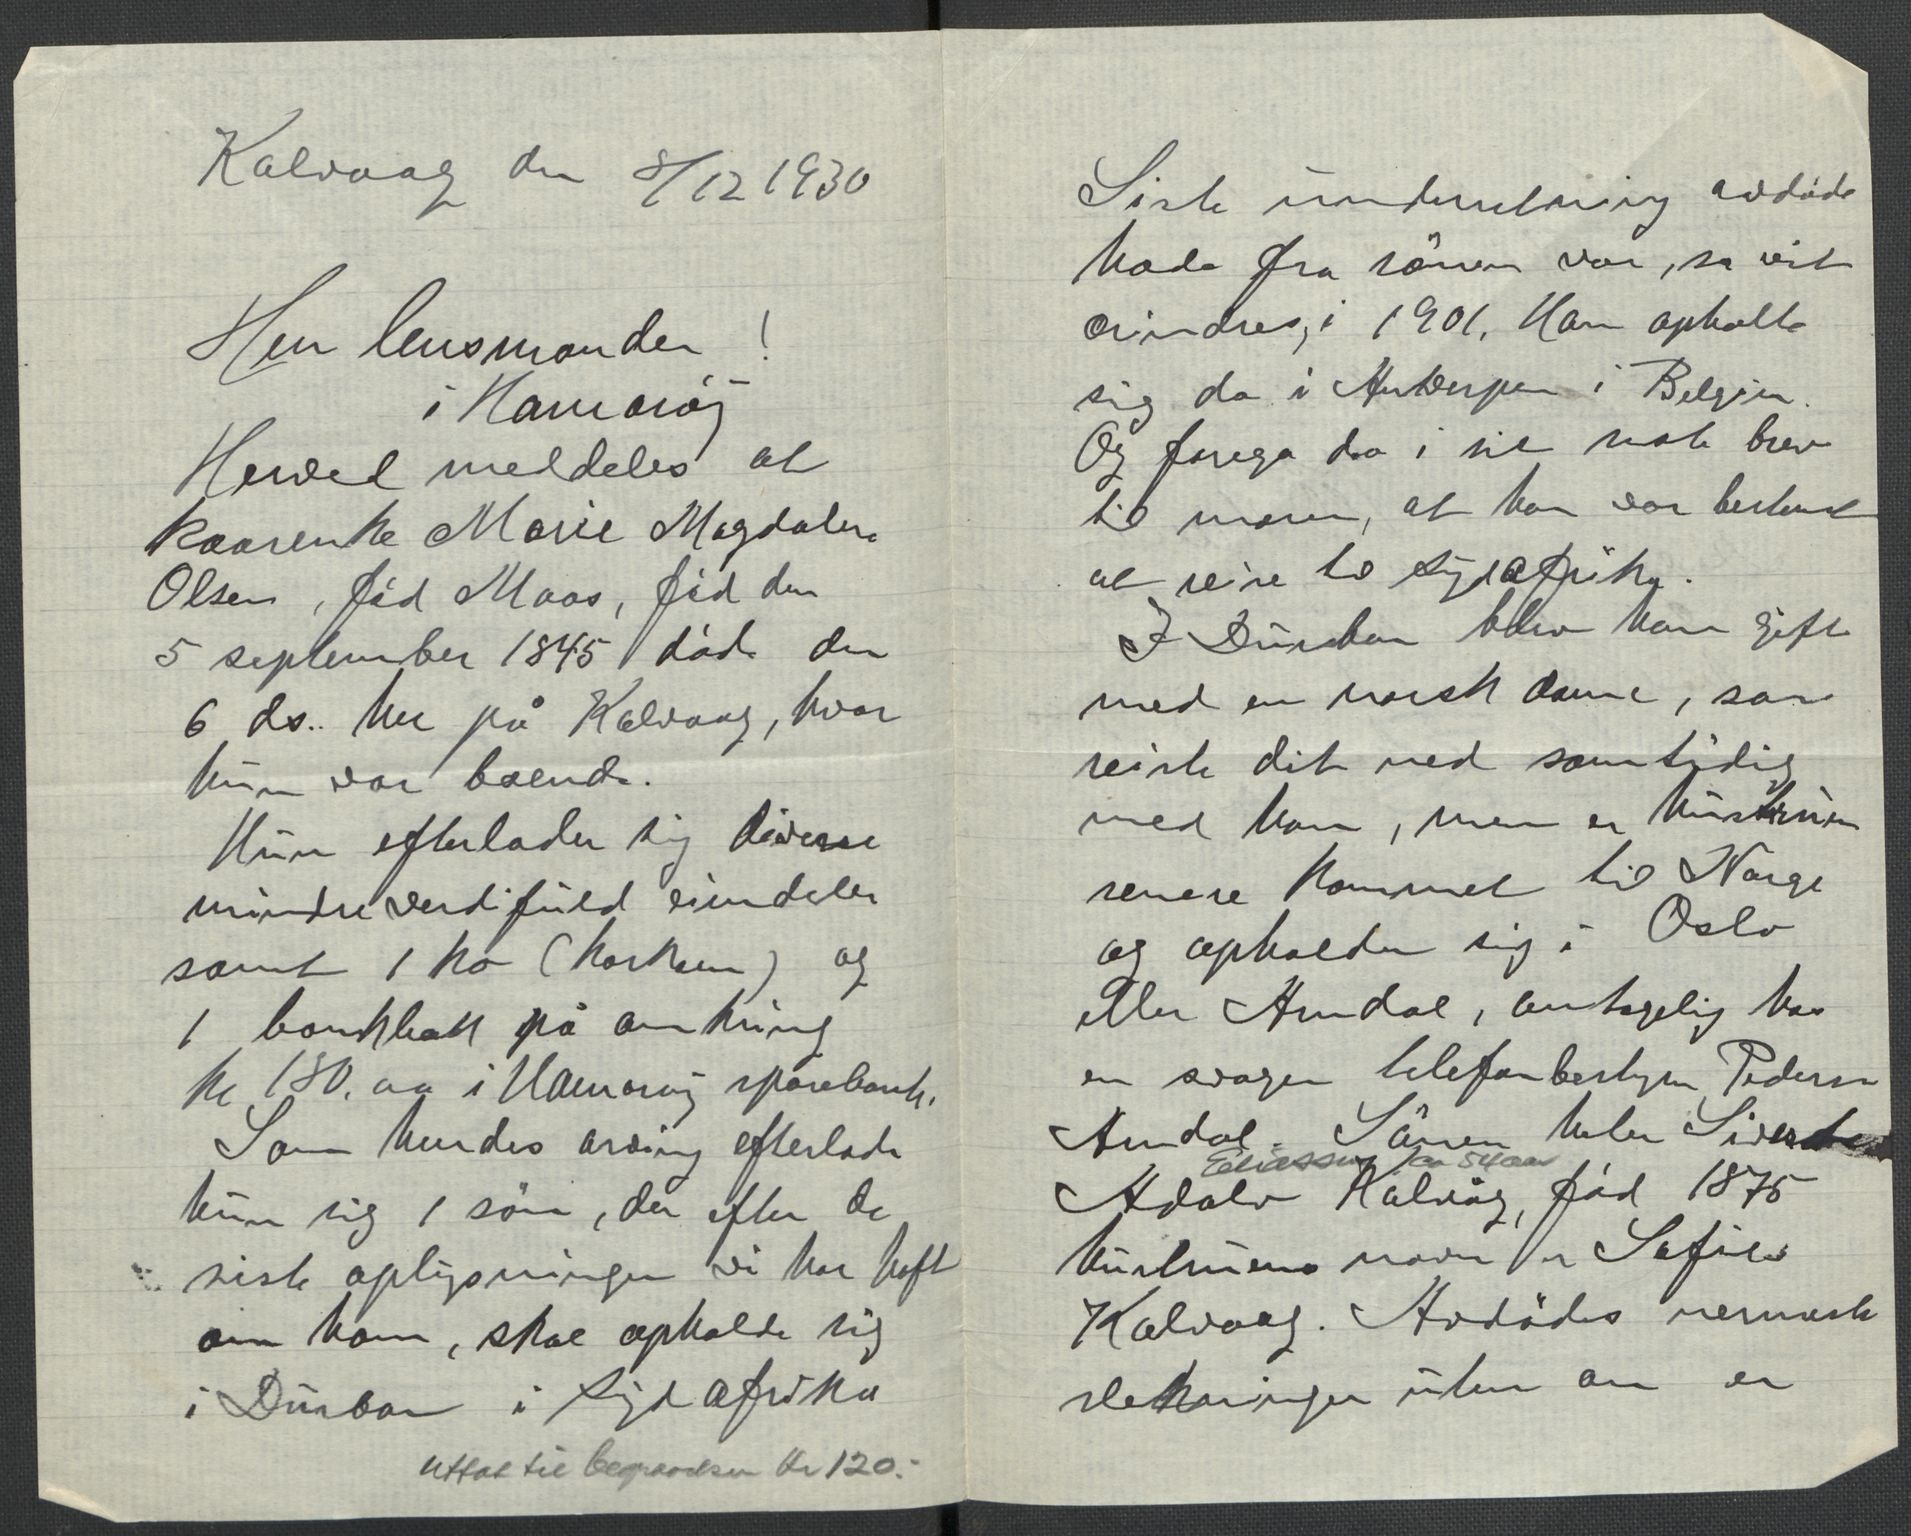 Kalvaag den 8/12 1930
Herr lensmanden !
i Hamarøy
Herved meddeles at
kaarenke Marie Magdalena
Olsen, född Maas, född den
5 september 1845 döde den
6 ds. her på Kalvaag, hvor
hun var boende.
Hun efterlader sig diverse
mindre verdifuld eiendeler
samt 1 ko (korkum) og
1 bankbok på omkring
kr 180.00 i Hamarøy sparebank.
Som hendes arving efterlader
hun sig 1 sön, der efter de
siste oplysninger vi har haft
om ham, skal opholde sig
i Durban i Syd afrika
Uttat til begravelsen kr 120.-
Siste underretning avdöde
hade fra sönen var, så vit
erindres, i 1901. Han opholte
sig da i Antverpen i Belgien.
Og forega da i sit siste brev
til moren, at han var bestemt
at reise til Sydafrika.
I Durban blev han gift
med en norsk dame, som
reiste dit ned samtidig
med ham, men er hustruen
senere kommet til Norge
og opholder sig i Oslo
eller Arndal, antagelig hos
en svoger telefonbestyrer Pedersen
Arndal. Sönnen heter Sivert
Eliassen ca 54 aar
Adolv Kalvåg, född 1875
hustruens navn er Sofie
Kalvaag. Avdödes nermeste
slektninger uten om er